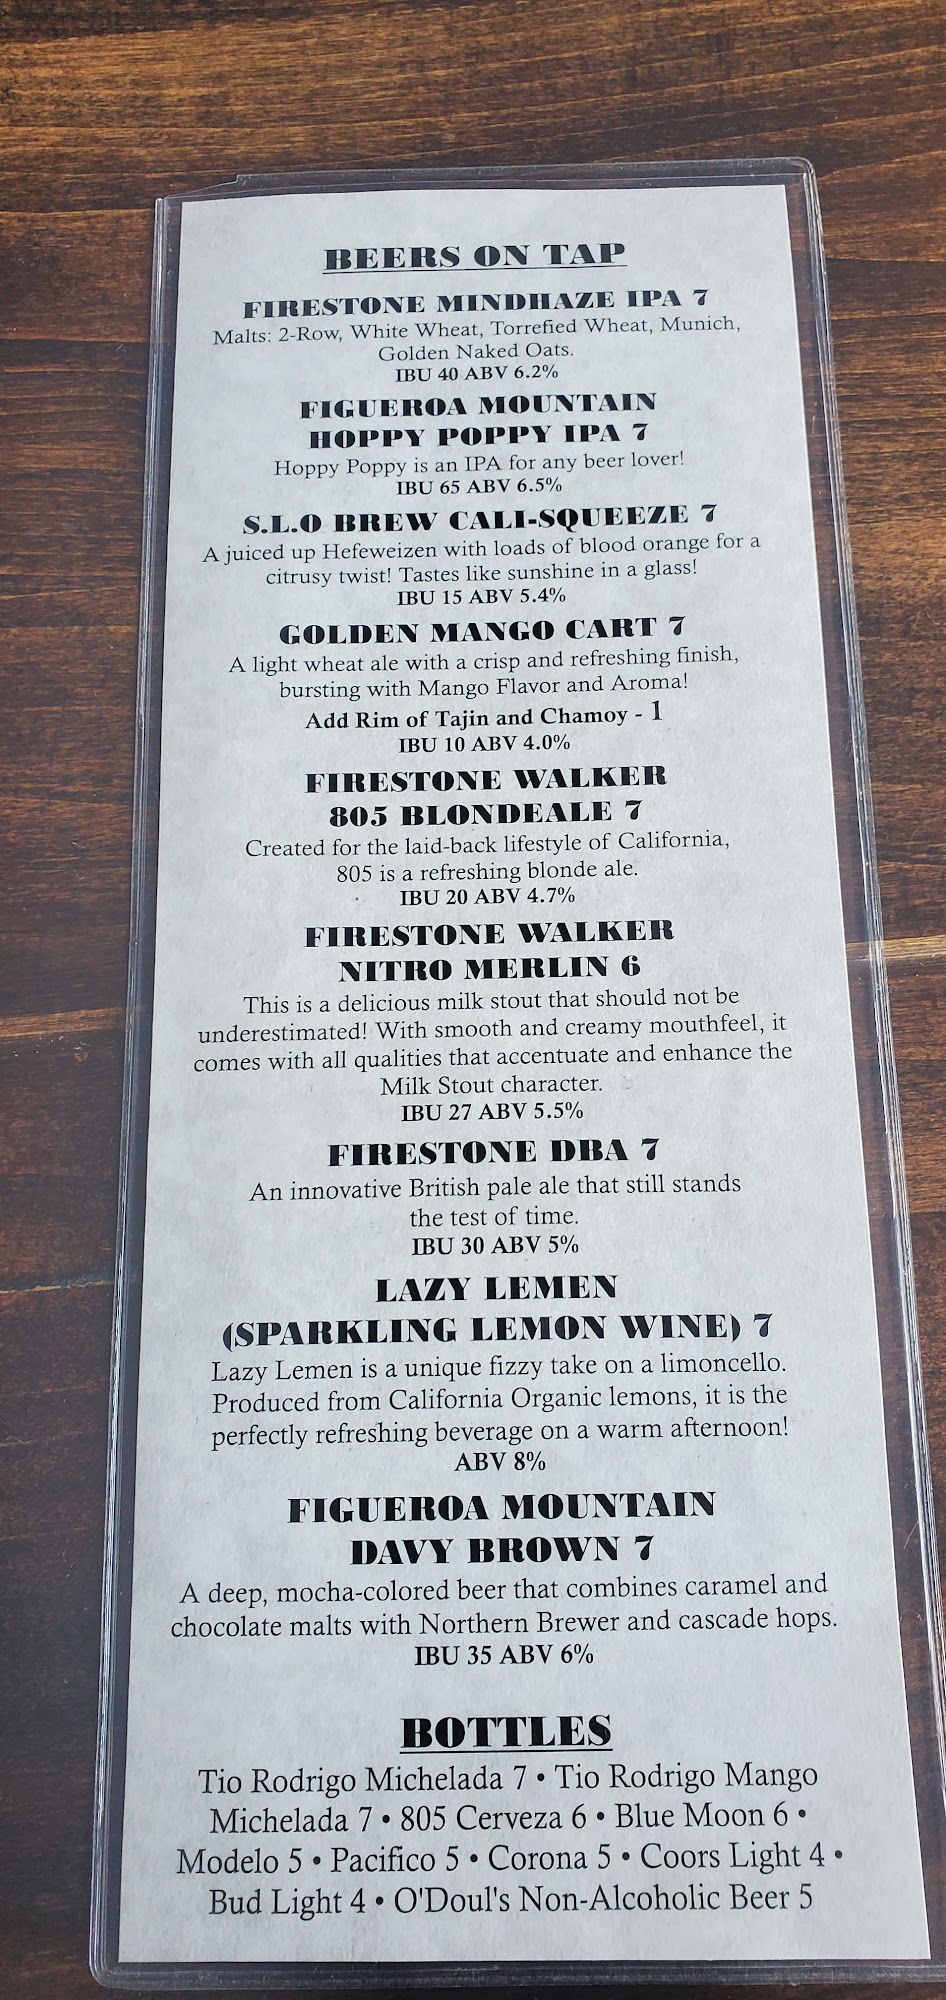 BEERS ON TAP
FIRESTONE MINDHAZE IPA 7
Malts: 2-Row, White Wheat, Torrefied Wheat, Munich,
Golden Naked Oats.
IBU 40 ABV 6.2%
FIGUEROA MOUNTAIN
HOPPY POPPY IPA 7
Hoppy Poppy is an IPA for any beer lover!
IBU 65 ABV 6.5%
S.L.O BREW CALI-SQUEEZE 7
A juiced up Hefeweizen with loads of blood orange for a
citrusy twist! Tastes like sunshine in a glass!
IBU 15 ABV 5.4%
GOLDEN MANGO CART 7
A light wheat ale with a crisp and refreshing finish,
bursting with Mango Flavor and Aroma!
Add Rim of Tajin and Chamoy - 1
IBU 10 ABV 4.0%
FIRESTONE WALKER
805 BLONDEALE 7
Created for the laid-back lifestyle of California,
805 is a refreshing blonde ale.
IBU 20 ABV 4.7%
FIRESTONE WALKER
NITRO MERLIN 6
This is a delicious milk stout that should not be
underestimated! With smooth and creamy mouthfeel, it
comes with all qualities that accentuate and enhance the
Milk Stout character.
IBU 27 ABV 5.5%
FIRESTONE DBA 7
An innovative British pale ale that still stands
the test of time.
IBU 30 ABV 5%
LAZY LEMEN
(SPARKLING LEMON WINE) 7
Lazy Lemen is a unique fizzy take on a limoncello.
Produced from California Organic lemons, it is the
perfectly refreshing beverage on a warm afternoon!
ABV 8%
FIGUEROA MOUNTAIN
DAVY BROWN 7
A deep, mocha-colored beer that combines caramel and
chocolate malts with Northern Brewer and cascade hops.
IBU 35 ABV 6%
BOTTLES
Tio Rodrigo Michelada 7 • Tio Rodrigo Mango
Michelada 7 • 805 Cerveza 6 • Blue Moon 6 •
Modelo 5 • Pacifico 5 • Corona 5 • Coors Light 4 •
Bud Light 4 • O'Doul's Non-Alcoholic Beer 5